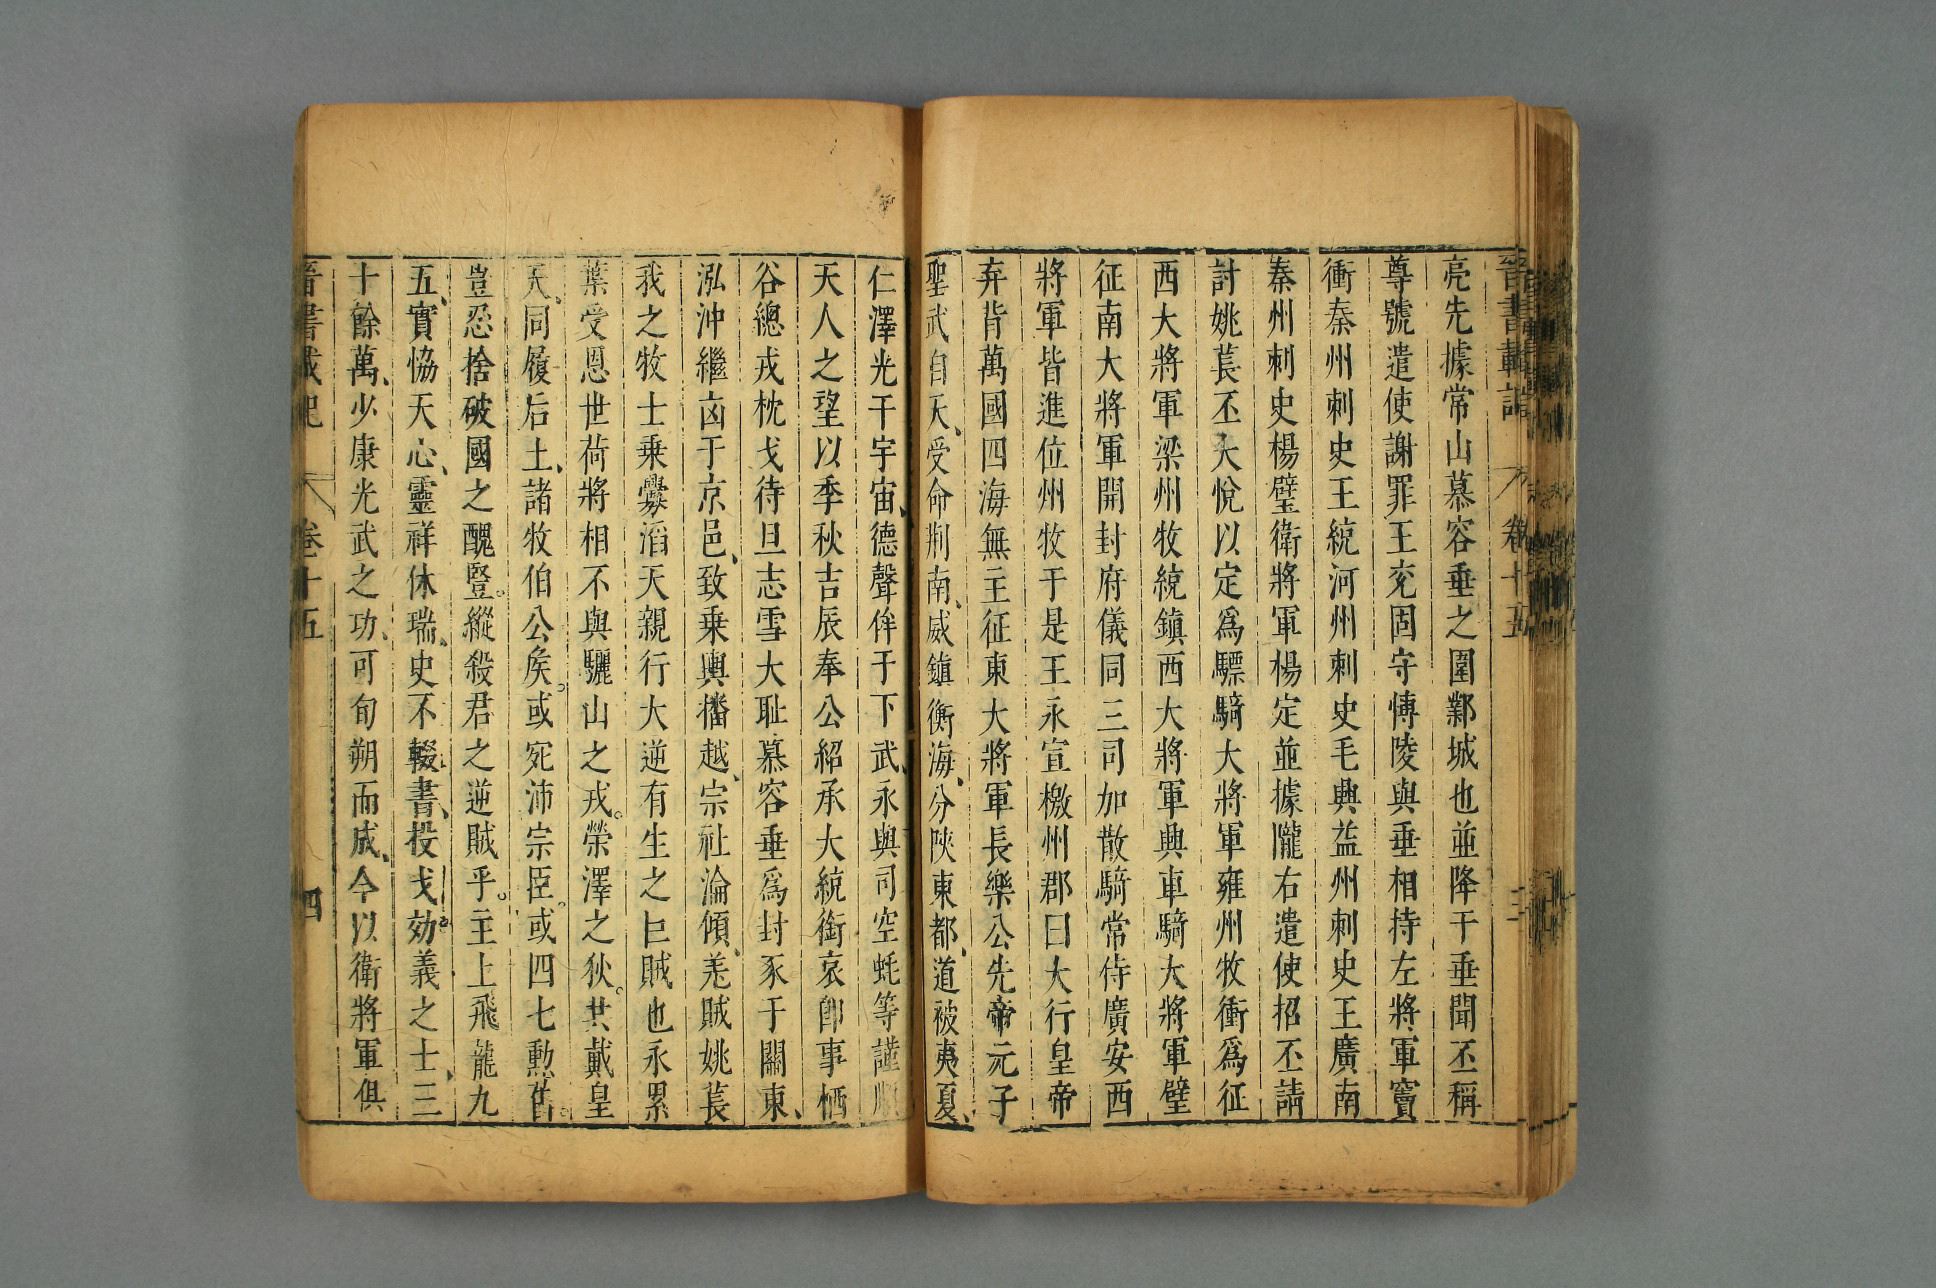 晉書載記 卷十五 三
亮先據常山慕容垂之圍鄴城也並降于垂聞丕稱
尊號遣使謝罪王兗固守博陵與垂相持左將軍竇
衝秦州刺史王統河州刺史毛興益州刺史王廣南
秦州刺史楊璧衛將軍楊定並據隴右遣使招丕請
討姚萇丕大悅以定爲驃騎大將軍雍州牧衝爲征
西大將軍梁州牧統鎮西大將軍興車騎大將軍璧
征南大將軍開封府儀同三司加散騎常侍廣安西
將軍皆進位州牧于是王永宣檄州郡曰大行皇帝
弃背萬國四海無主征東大將軍長樂公先帝元子
聖武自天、受命荆南、威鎮衡海、分陝東都、道被夷夏、
仁澤光于宇宙、德聲侔于下武、永與司空蚝等謹順
天人之望以季秋吉辰奉公紹承大統銜哀卽事栖
谷總戎枕戈待旦志雪大耻慕容垂爲封豕于關東、
泓沖繼凶于京邑、致乘輿播越、宗社淪傾、羌賊姚萇
我之牧士乘釁滔天親行大逆有生之巨賊也永累
葉受恩世荷將相不與驪山之戎。榮澤之狄。共戴皇
天、同履后土、諸牧伯公矦。或宛沛宗臣。或四七勲舊。
豈忍捨破國之醜豎。縱殺君之逆賊乎。主上飛龍九
五、實恊天心、靈祥休瑞、史不輟書、投戈効義之士、三
十餘萬、少康光武之功、可旬朔而成、今以衛將軍俱
晉書載記 卷十五 四